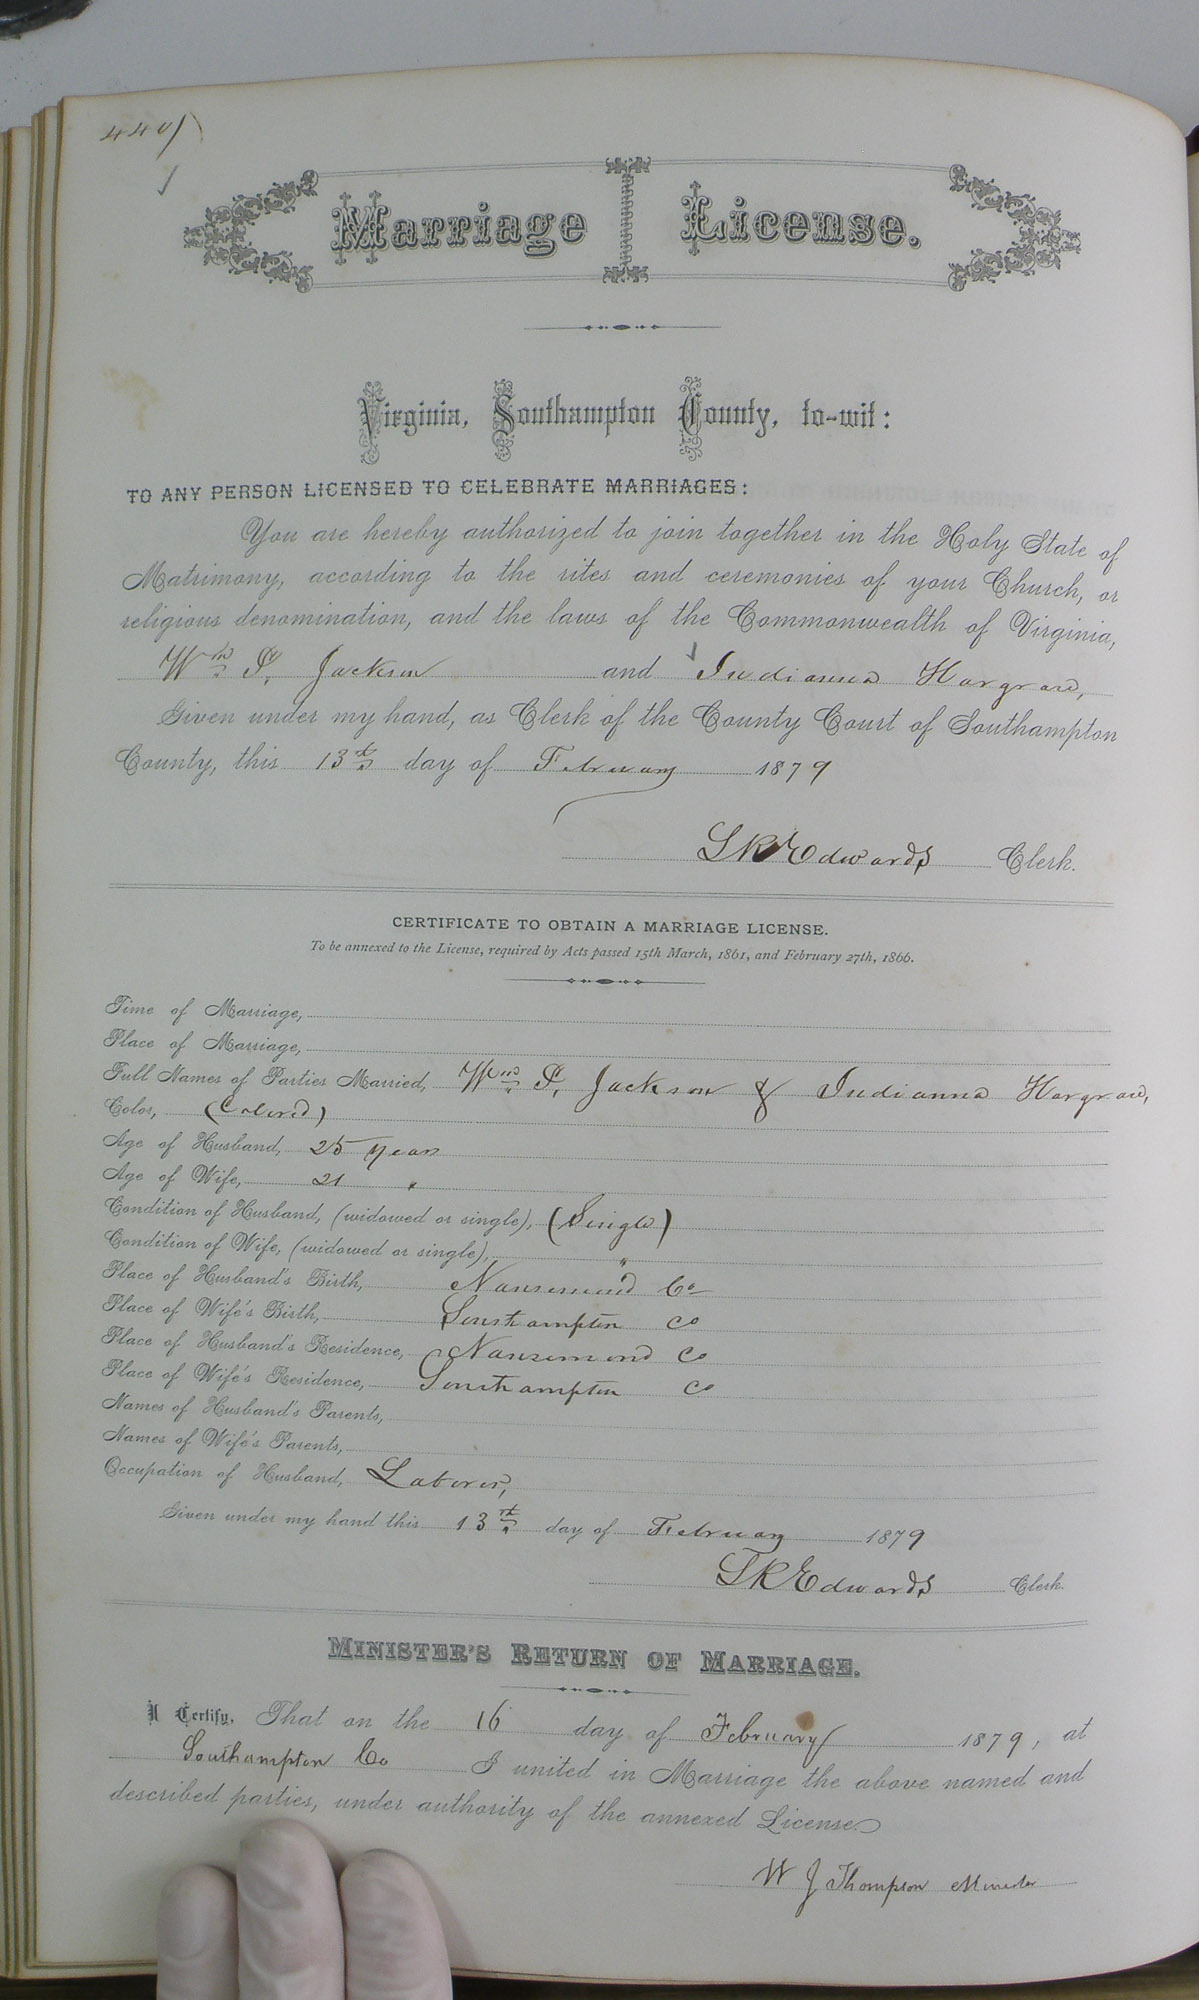 440)
Marriage License.
Virginia, Southampton County, to-wit:
TO ANY PERSON LICENSED TO CELEBRATE MARRIAGES:
You are hereby authorized to join together in the Holy State of
Matrimony, according to the rites and ceremonies of your Church, or
religious denomination, and the laws of the Commonwealth of Virginia,
Wm P. Jackson and Indianna Hargrave,
Given under my hand, as Clerk of the County Court of Southampton
County, this 13th day of February 1879
L R Edwards Clerk.
CERTIFICATE TO OBTAIN A MARRIAGE LICENSE.
To be annexed to the License, required by Acts passed 15th March, 1861, and February 27th, 1866.
Time of Marriage,
Place of Marriage,
Full Names of Parties Married, Wm P. Jackson & Indianna Hargrave,
Color, (Colored)
Age of Husband, 25 years
Age of Wife, 21 "
Condition of Husband, (widowed or single), (Single)
Condition of Wife, (widowed or single), "
Place of Husband's Birth, Nansemond Co
Place of Wife's Birth, Southampton Co
Place of Husband's Residence, Nansemond Co
Place of Wife's Residence, Southampton Co
Names of Husband's Parents,
Names of Wife's Parents,
Occupation of Husband, Laborer,
Given under my hand this 13th day of February 1879
L R Edwards Clerk.
MINISTER'S RETURN OF MARRIAGE.
I Certify, That on the 16 day of February 1879, at
Southampton Co I united in Marriage the above named and
described parties, under authority of the annexed License.
W J Thompson Minister